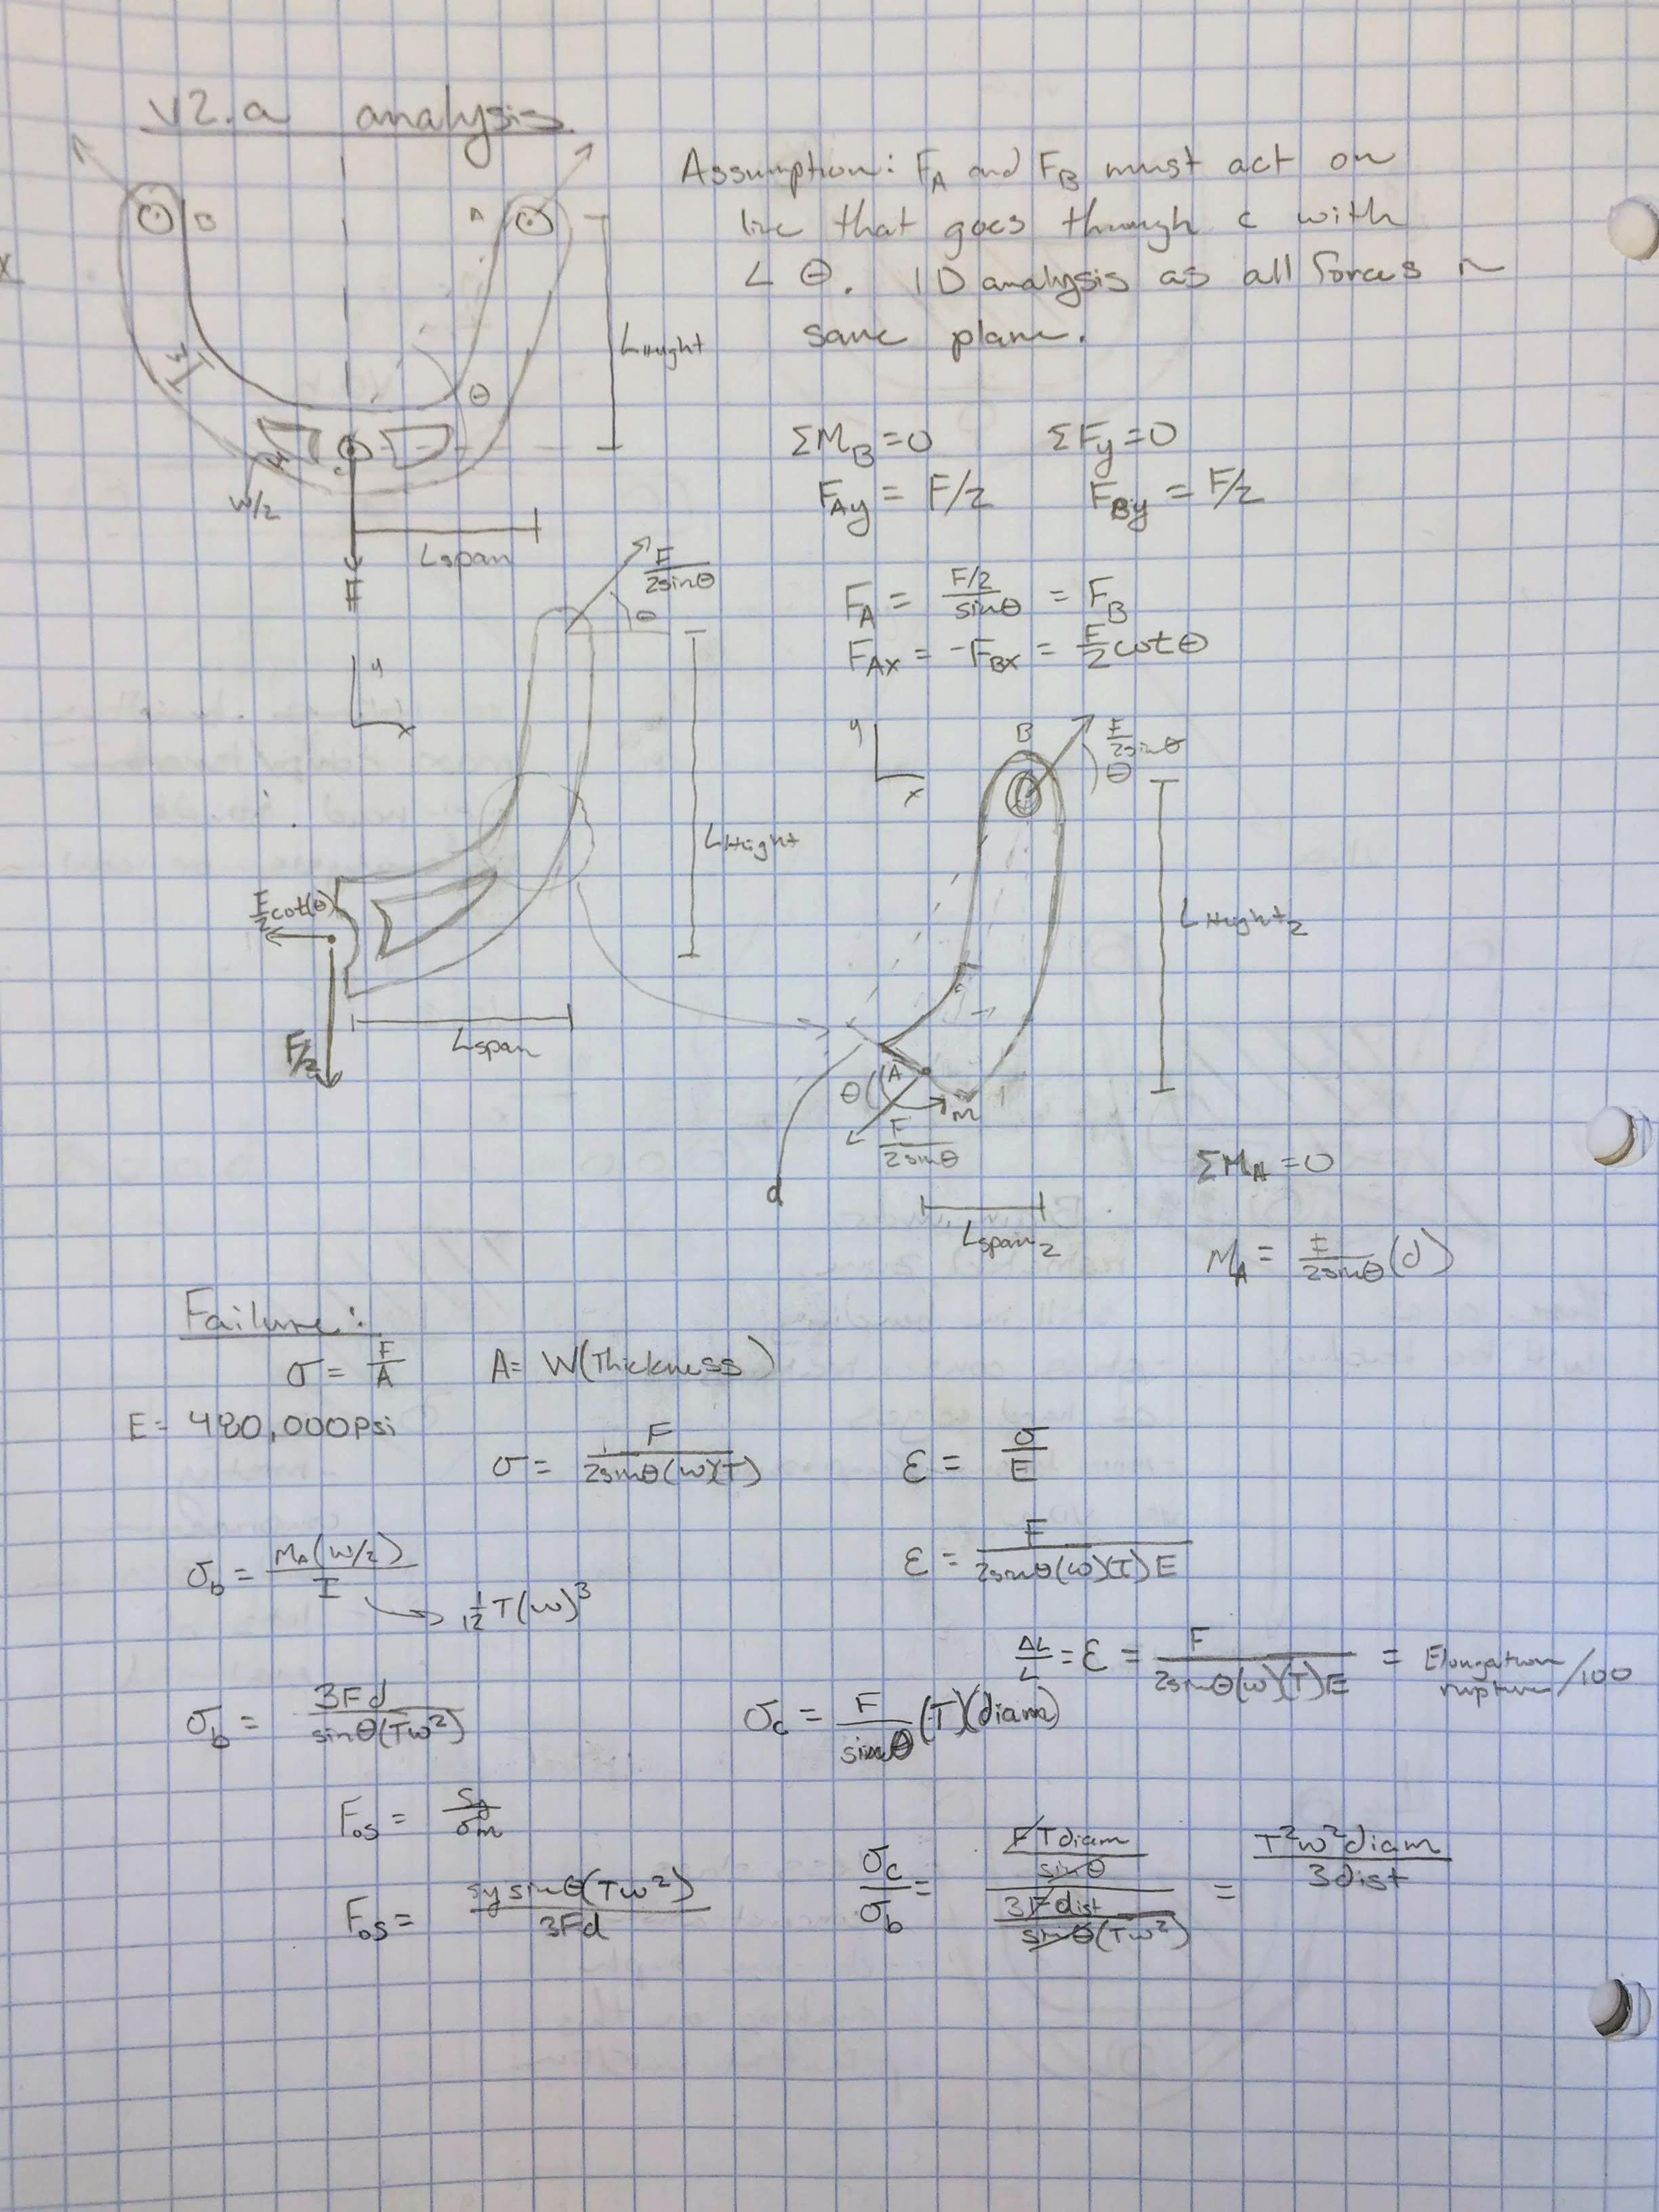 V2.a analysis
Assumption: F_A and F_B must act on
line that goes through c with
∠ θ. 1D analysis as all forces in
same plane.
B
A
W
θ
L_Height
W/2
C
L_span
F
ΣM_B = 0    ΣF_y = 0
F_Ay = F/2    F_By = F/2
F_A = (F/2)/sinθ = F_B
F_Ax = -F_Bx = F/2 cotθ
y
x
F/(2sinθ)
θ
L_Height
F/2 cot(θ)
F/2
L_span
y
x
B
F/(2sinθ)
θ
L_Height2
θ
A
m
F/(2sinθ)
d
L_span2
ΣM_A = 0
M_A = F/(2sinθ) (d)
Failure:
σ = F/A    A = W(Thickness)
E = 480,000 psi
σ = F/(2sinθ(w)(T))    ε = σ/E
σ_b = M_A(W/2)/I    ε = F/(2sinθ(w)(T)E)
1/12 T(w)³
ΔL/L = ε = F/(2sinθ(w)(T)E) = Elongation rupture/100
σ_b = 3Fd/(sinθ(Tw²))    σ_c = F/sinθ (T)(diam)
Fos = Sy/σm
σ_c/σ_b = (FTdiam/sinθ)/(3Fdist/(sinθ(Tw²))) = T²w²diam/3dist
Fos = sy sinθ(Tw²)/3Fd